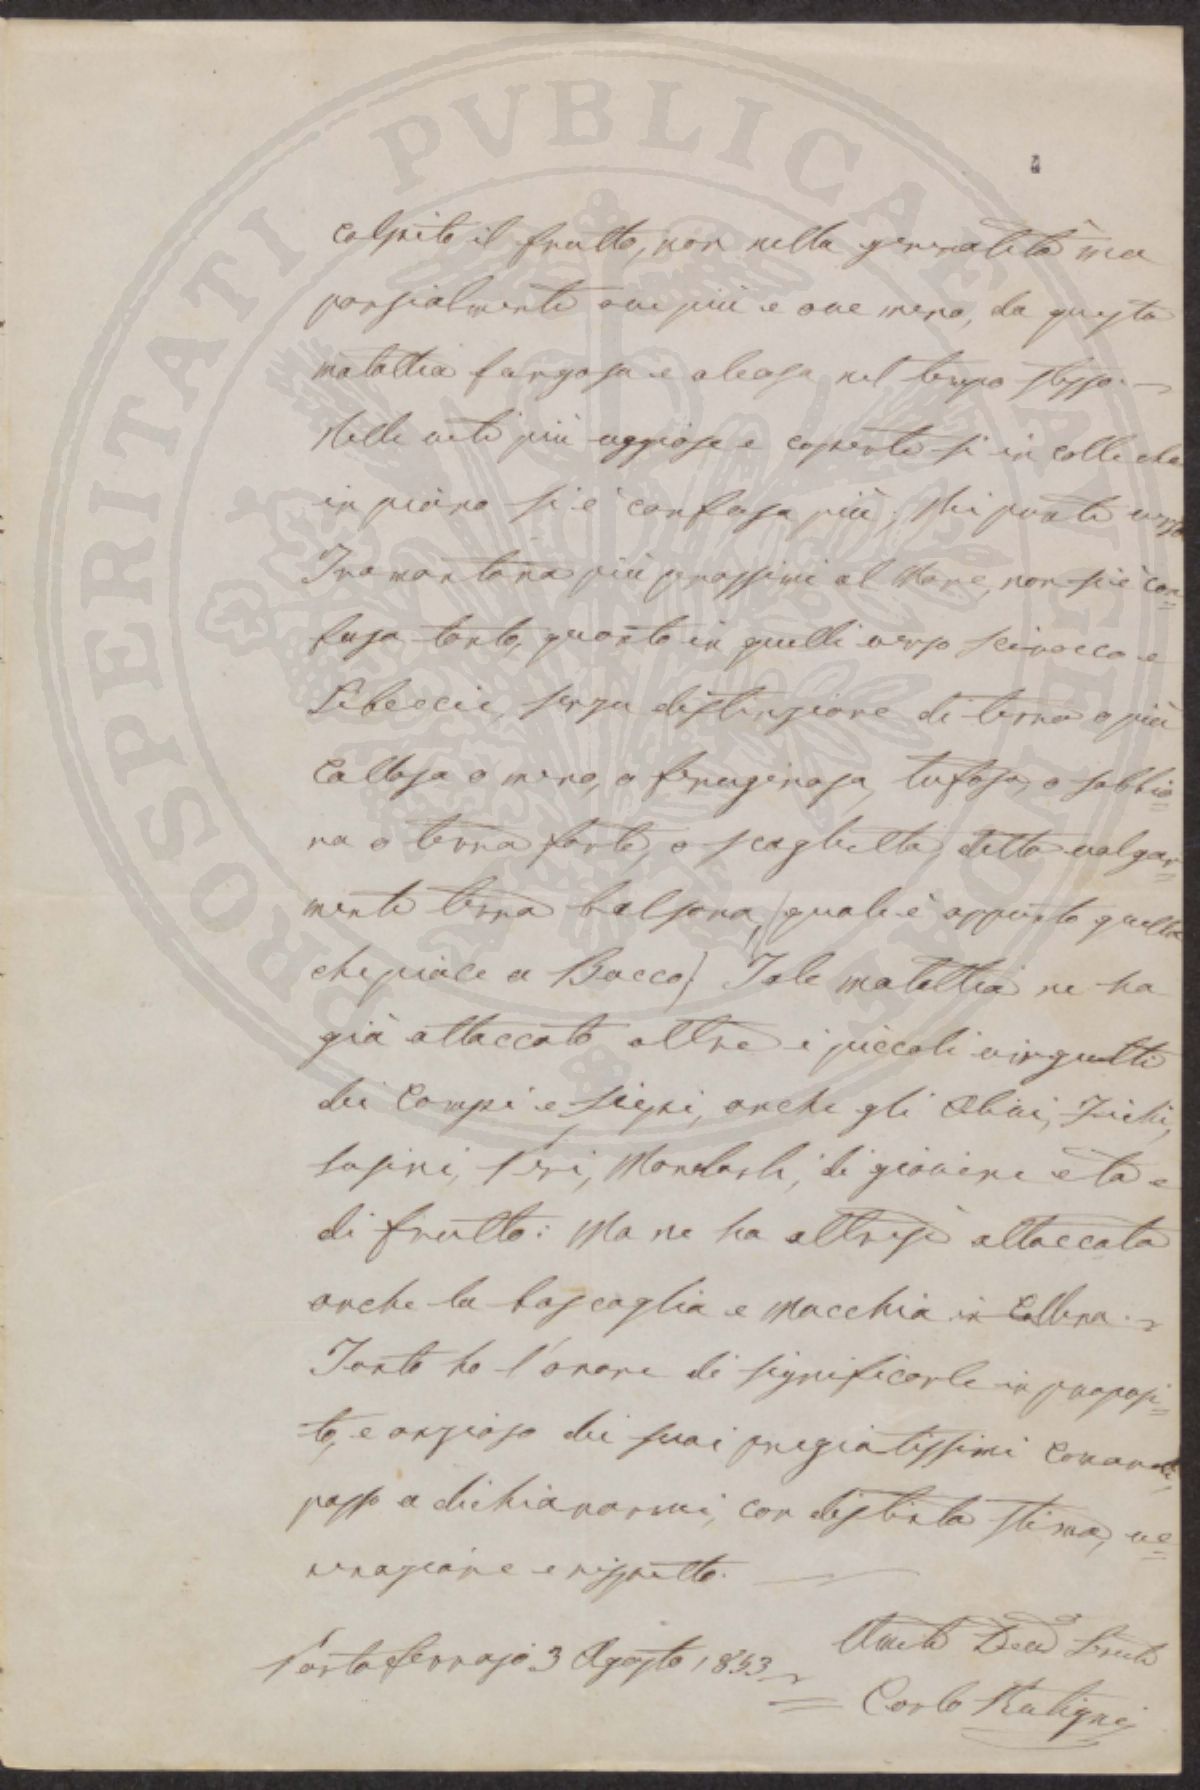 4
colpito il frutto, non nella generalità ma
parzialmente ove più e ove meno, da questa
malattia fungosa e aleosa nel tempo stesso. ~
Nelle viti più uggiose e coperte si in colle che
in piano si è confusa più; Nei punti verso
Tramontana più prossimi al Mare, non si è con=
fusa tanto, quanto in quelli verso scirocco e
Libeccio, senza distinzione di terra o più
Caltosa o meno, o feruginosa, tufosa, o sabbio=
na o terra forte, o scaglietta, detta volgar=
mente terra balsana, (quale è appunto quella
che piace a Bacco) Tale malattia ne ha
già attaccato oltre i piccoli virgulti
dei Campi e siepi, anche gli Olivi, Fichi,
susini, Peri, Mandorli, di giovine età e
di frutto: Ma ne ha altresì attaccata
anche la boscaglia e Macchia in Collina. ~
Tanto ho l'onore di significarle in proposi=
to, e ansioso dei suoi pregiatissimi Comandi,
passo a dichiararmi, con distinta stima, ve=
nerazione e rispetto.
Portoferrajo 3 Agosto 1853
Carlo
PROSPERITATI PVBLICAE AVGENDAE